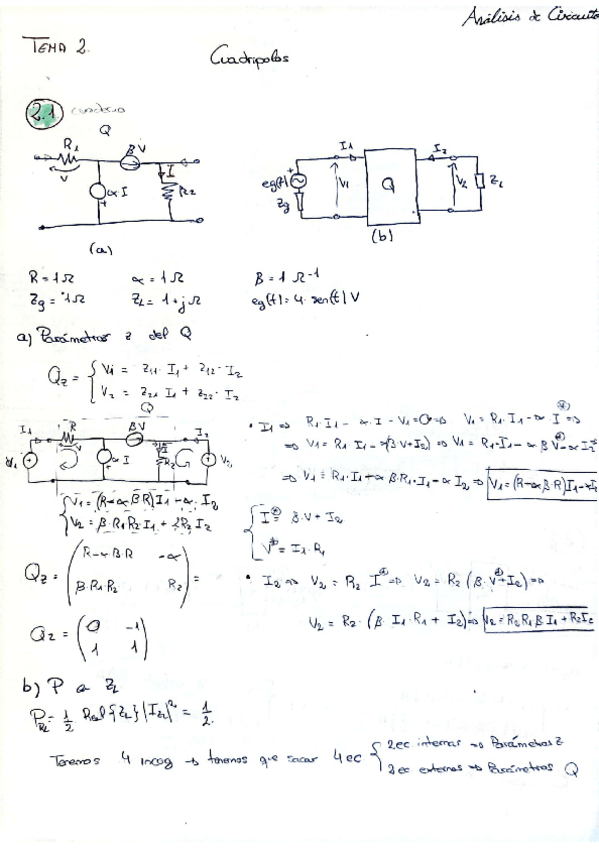 Análisis de Circuito
TEMA 2.
Cuadripolos
2.1 cuaderno
Q
R1 βV
V αI I R2
(a)
I1 I2
eg(t) V1 Q V2 ZL
Zg
(b)
R = 1Ω α = 1Ω β = 1 Ω-1
Zg = 1Ω ZL = 1+j Ω eg(t) = 4·sen(t) V
a) Parámetros z del Q
Qz = { V1 = Z11·I1 + Z12·I2
V2 = Z21 I1 + Z22·I2
Q
I1 R βV I2
V1 V αI I R2 V2
• I1 ⇒ R1I1 - α·I - V1 = 0 ⇒ V1 = R1·I1 - α I ⇒
⇒ V1 = R1 I1 - α(βV+I2) ⇒ V1 = R1·I1 - α β V - α I2
⇒ V1 = R1·I1 + α β·R1·I1 - α I2 ⇒ V1 = (R-αβR)I1 - αI2
{ V1 = (R-αβR)I1 - α·I2
V2 = β·R1R2 I1 + R2 I2
{ I = β·V + I2
V = I1·R1
Qz = ( R-αβR -α
β·R1·R2 R2 ) =
• I2 ⇒ V2 = R2 I ⇒ V2 = R2 (β·V+I2) ⇒
V2 = R2·(β·I1·R1 + I2) ⇒ V2 = R2R1βI1 + R2I2
Qz = ( 0 -1
1 1 )
b) P a ZL
PRL = 1/2 Real{ZL}|IZL|² = 1/2.
Tenemos 4 incog → tenemos que sacar 4ec { 2ec internas → Parámetros Z
2ec externas → Parámetros Q